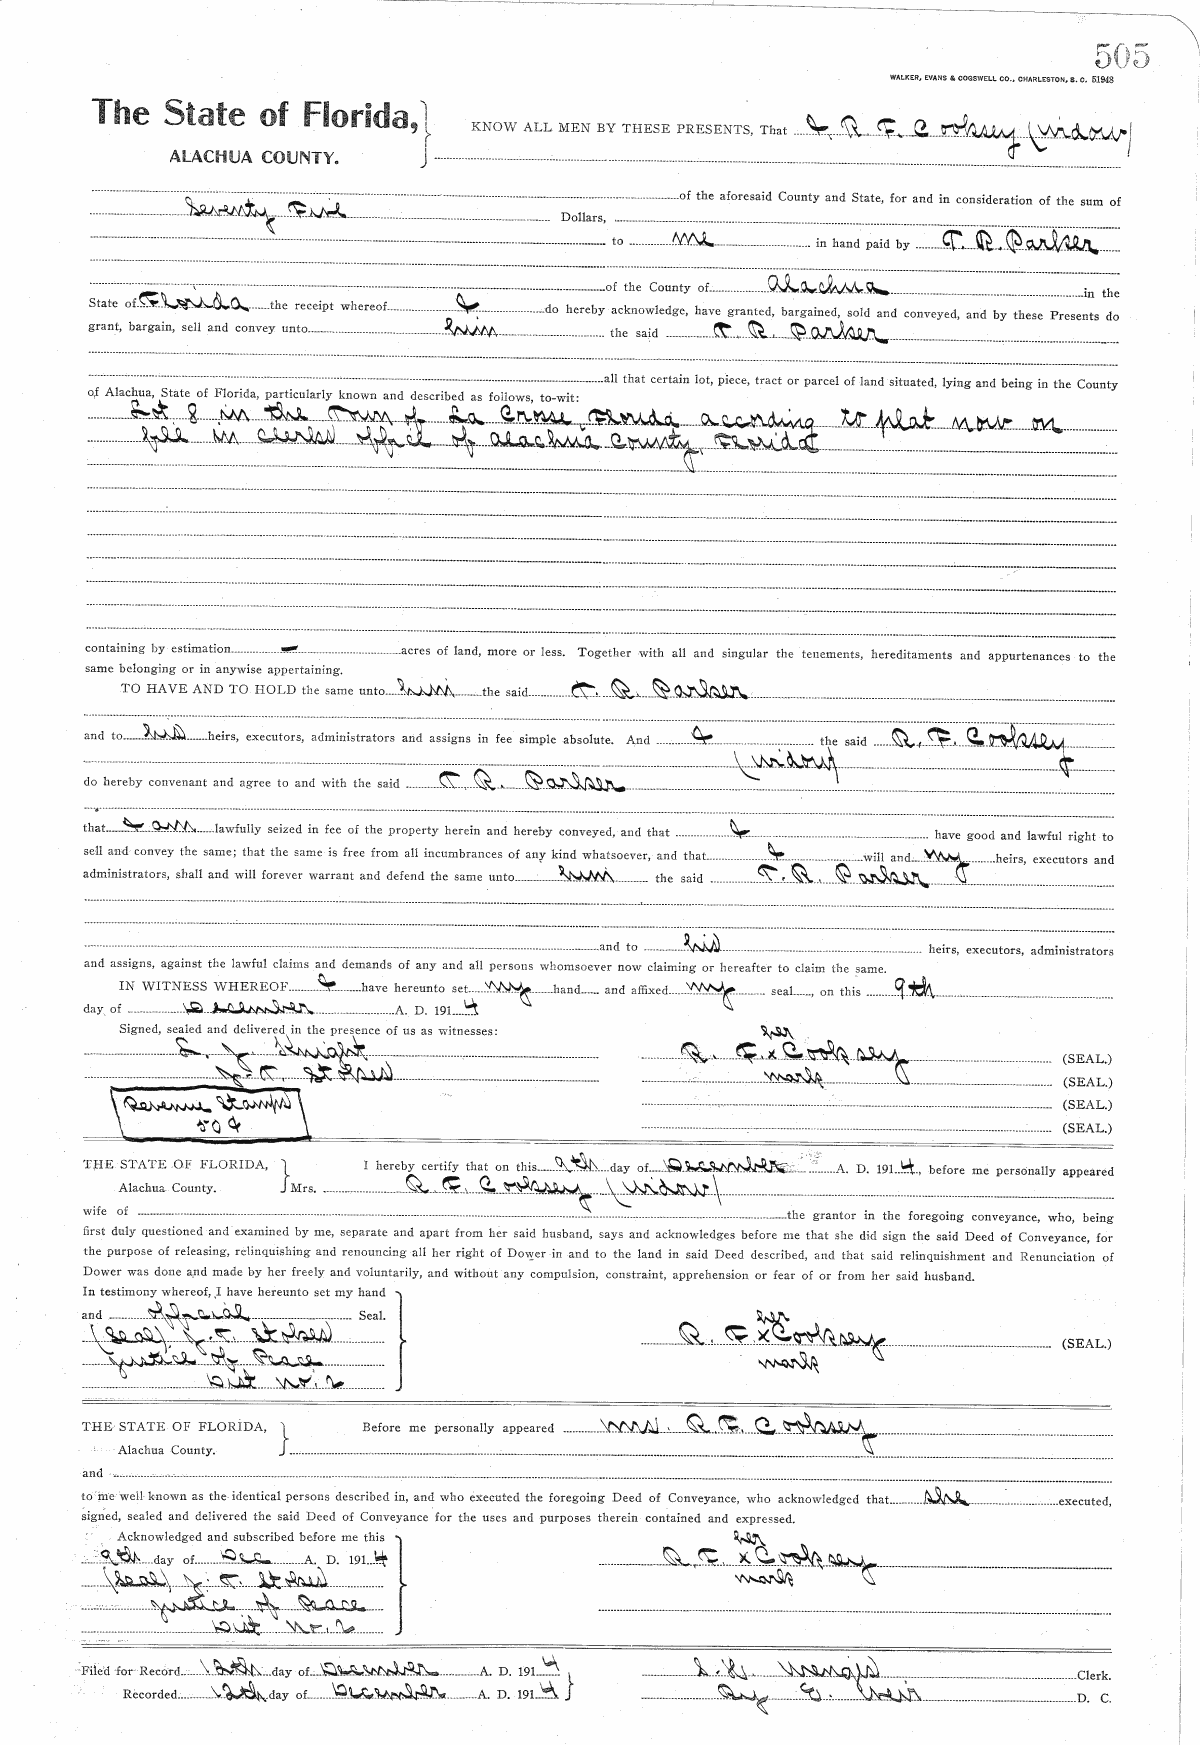 505
WALKER, EVANS & COGSWELL CO., CHARLESTON, S. C. 51948
The State of Florida,
ALACHUA COUNTY.
KNOW ALL MEN BY THESE PRESENTS, That I, R. F. Cooksey (widow)
of the aforesaid County and State, for and in consideration of the sum of
Seventy Five Dollars,
to me in hand paid by T. R. Parker
of the County of Alachua in the
State of Florida the receipt whereof I do hereby acknowledge, have granted, bargained, sold and conveyed, and by these Presents do
grant, bargain, sell and convey unto him the said T. R. Parker
all that certain lot, piece, tract or parcel of land situated, lying and being in the County
of Alachua, State of Florida, particularly known and described as follows, to-wit:
Lot 8 in the Town of La Crosse, Florida according to plat now on
file in clerks office of Alachua County, Florida
containing by estimation — acres of land, more or less. Together with all and singular the tenements, hereditaments and appurtenances to the
same belonging or in anywise appertaining.
TO HAVE AND TO HOLD the same unto him the said T. R. Parker
and to his heirs, executors, administrators and assigns in fee simple absolute. And I the said R. F. Cooksey
(widow)
do hereby convenant and agree to and with the said T. R. Parker
that I am lawfully seized in fee of the property herein and hereby conveyed, and that I have good and lawful right to
sell and convey the same; that the same is free from all incumbrances of any kind whatsoever, and that I will and my heirs, executors and
administrators, shall and will forever warrant and defend the same unto him the said T. R. Parker
and to his heirs, executors, administrators
and assigns, against the lawful claims and demands of any and all persons whomsoever now claiming or hereafter to claim the same.
IN WITNESS WHEREOF I have hereunto set my hand and affixed my seal, on this 9th
day of December A. D. 1914
Signed, sealed and delivered in the presence of us as witnesses:
her
L. J. Knight R. F. x Cooksey (SEAL.)
J. T. Stokes mark (SEAL.)
Revenue Stamps (SEAL.)
50¢ (SEAL.)
THE STATE OF FLORIDA, I hereby certify that on this 9th day of December A. D. 1914, before me personally appeared
Alachua County. Mrs. R. F. Cooksey (widow)
wife of the grantor in the foregoing conveyance, who, being
first duly questioned and examined by me, separate and apart from her said husband, says and acknowledges before me that she did sign the said Deed of Conveyance, for
the purpose of releasing, relinquishing and renouncing all her right of Dower in and to the land in said Deed described, and that said relinquishment and Renunciation of
Dower was done and made by her freely and voluntarily, and without any compulsion, constraint, apprehension or fear of or from her said husband.
In testimony whereof, I have hereunto set my hand
and official Seal.
her
(Seal) J. T. Stokes R. F. x Cooksey (SEAL.)
Justice of Peace mark
Dist No. 2
THE STATE OF FLORIDA, Before me personally appeared Mrs. R. F. Cooksey
Alachua County.
and
to me well known as the identical persons described in, and who executed the foregoing Deed of Conveyance, who acknowledged that she executed,
signed, sealed and delivered the said Deed of Conveyance for the uses and purposes therein contained and expressed.
Acknowledged and subscribed before me this her
9th day of Dec A. D. 1914 R. F. x Cooksey
(Seal) J. T. Stokes mark
Justice of Peace
Dist No. 2
Filed for Record 12th day of December A. D. 1914 S. H. Wienges Clerk.
Recorded 12th day of December A. D. 1914 By E. Weir D. C.